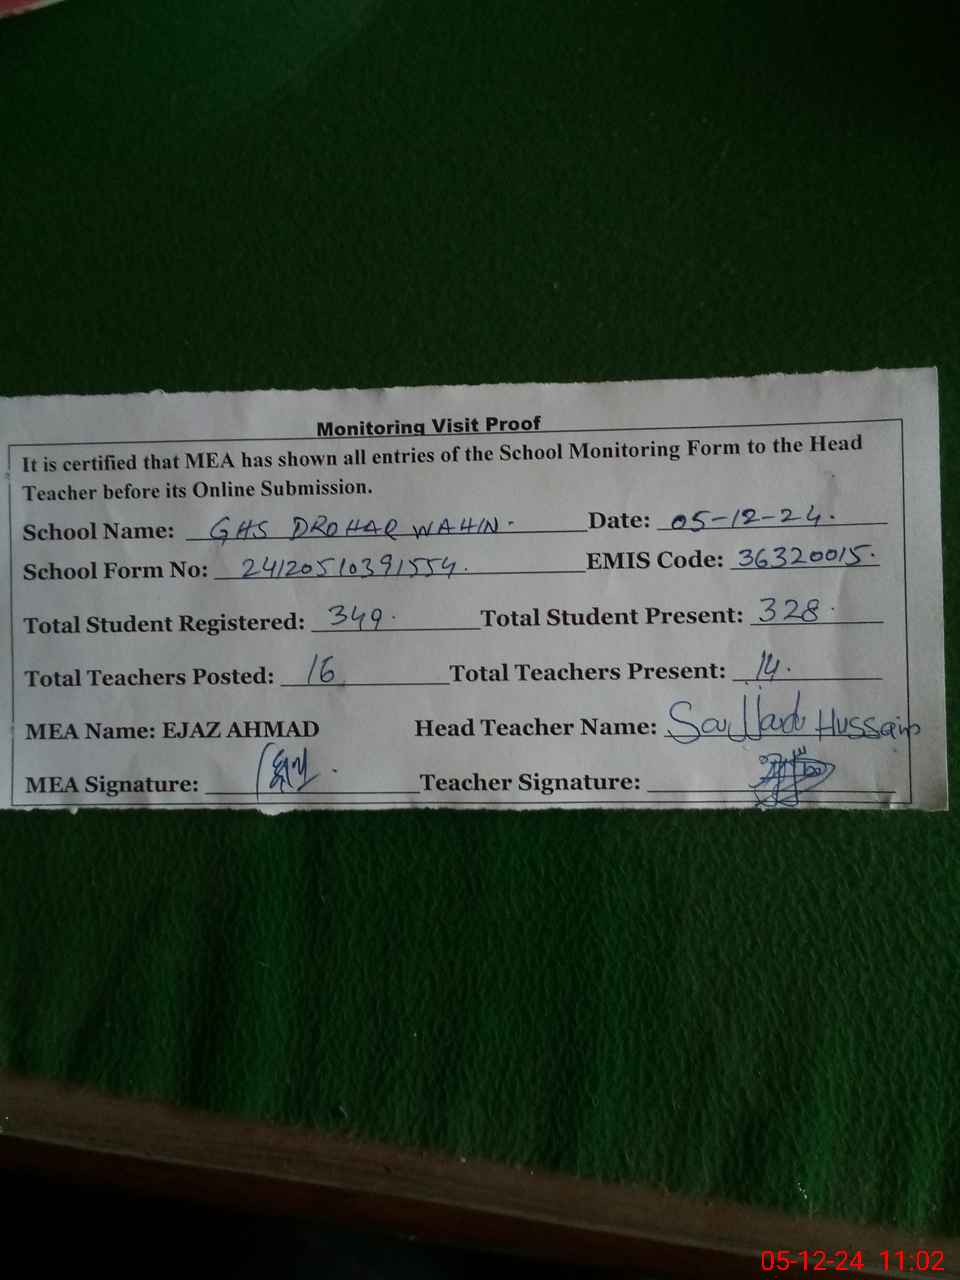 Monitoring Visit Proof
It is certified that MEA has shown all entries of the School Monitoring Form to the Head
Teacher before its Online Submission.
School Name: GHS DROHAR WAHIN. Date: 05-12-24.
School Form No: 24120510391554. EMIS Code: 36320015.
Total Student Registered: 349. Total Student Present: 328.
Total Teachers Posted: 16 Total Teachers Present: 14.
MEA Name: EJAZ AHMAD Head Teacher Name: Sajjad Hussain
MEA Signature: Teacher Signature:
05-12-24 11:02